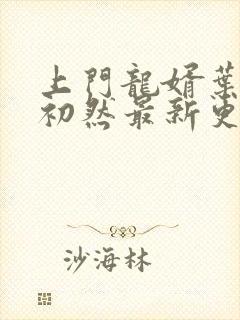 上門龍婿葉
初然最新更
沙海林